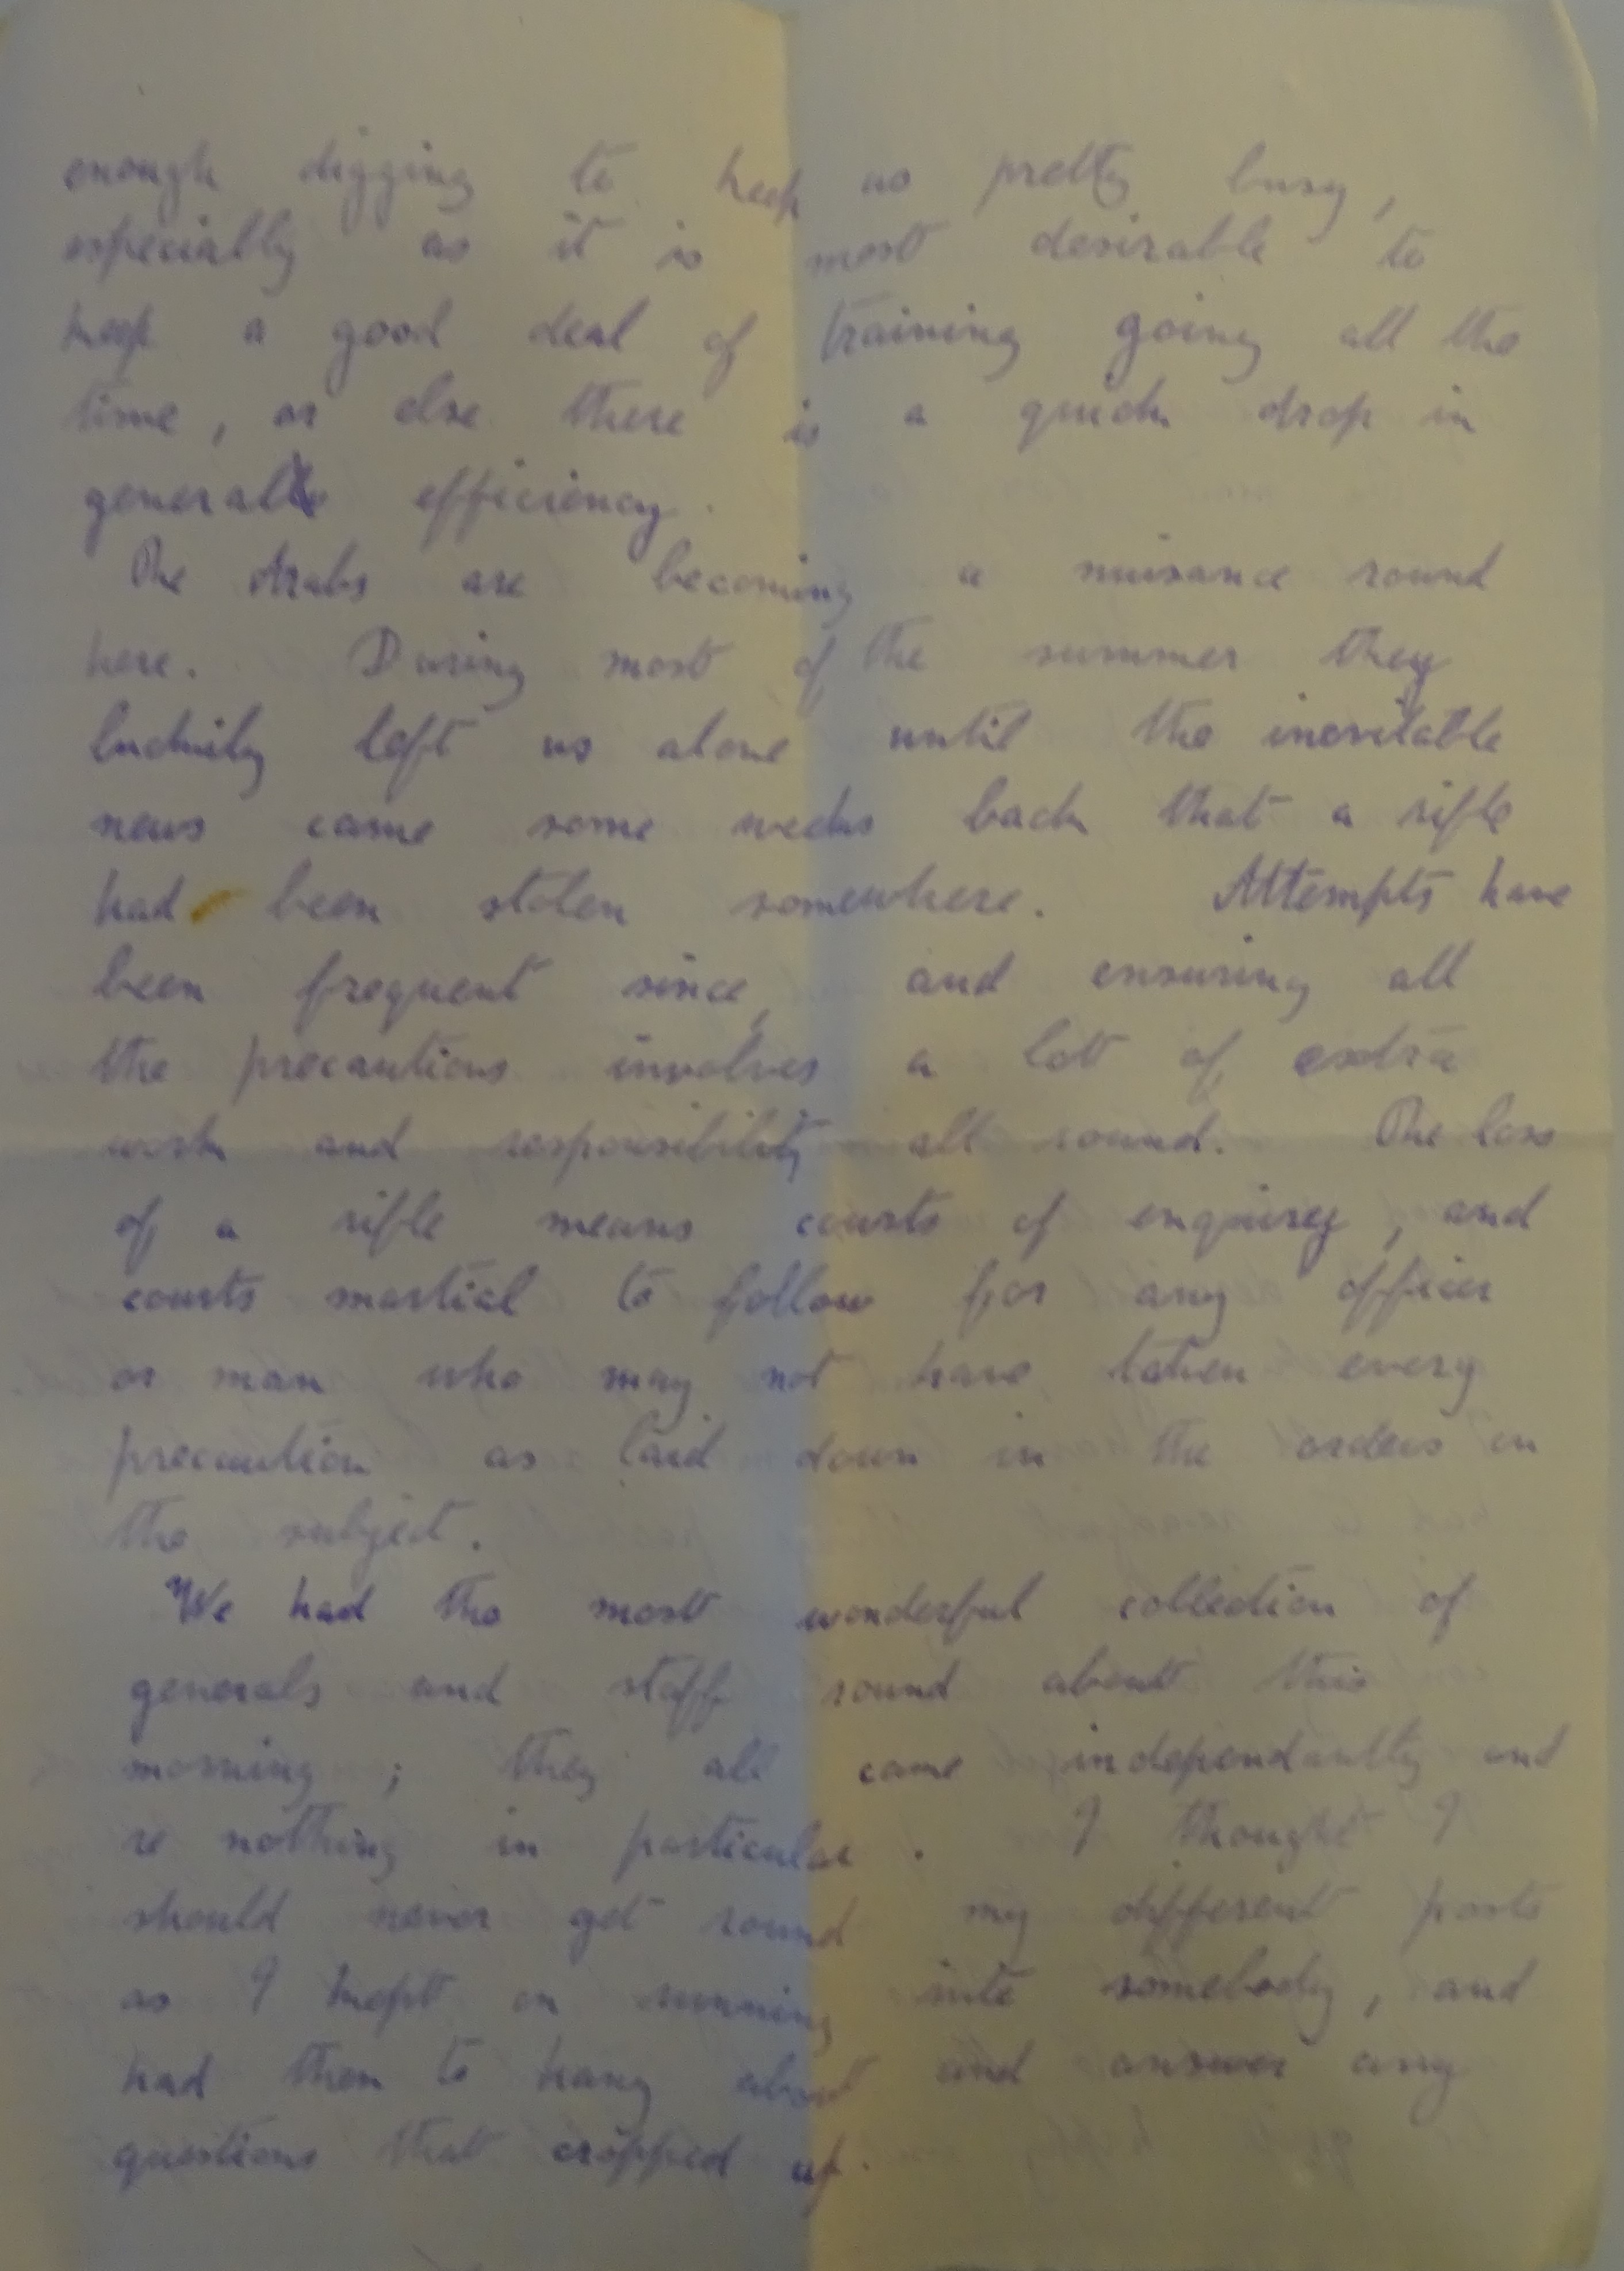 enough digging to keep us pretty busy,
especially as it is most desirable to
keep a good deal of training going all the
time, or else there is a quick drop in
general efficiency.
The Arabs are becoming a nuisance round
here. During most of the summer they
luckily left us alone until the inevitable
news came some weeks back that a rifle
had been stolen somewhere. Attempts have
been frequent since, and ensuring all
the precautions involves a lot of extra
work and responsibility all round. The loss
of a rifle means courts of enquirey, and
courts martial to follow for any officer
or man who may not have taken every
precaution as laid down in the orders on
the subject.
We had the most wonderful collection of
generals and staff round about this
morning; they all came independantly and
re nothing in particular. I thought I
should never get round my different posts
as I kept on running into somebody, and
had then to hang about and answer any
questions that cropped up.